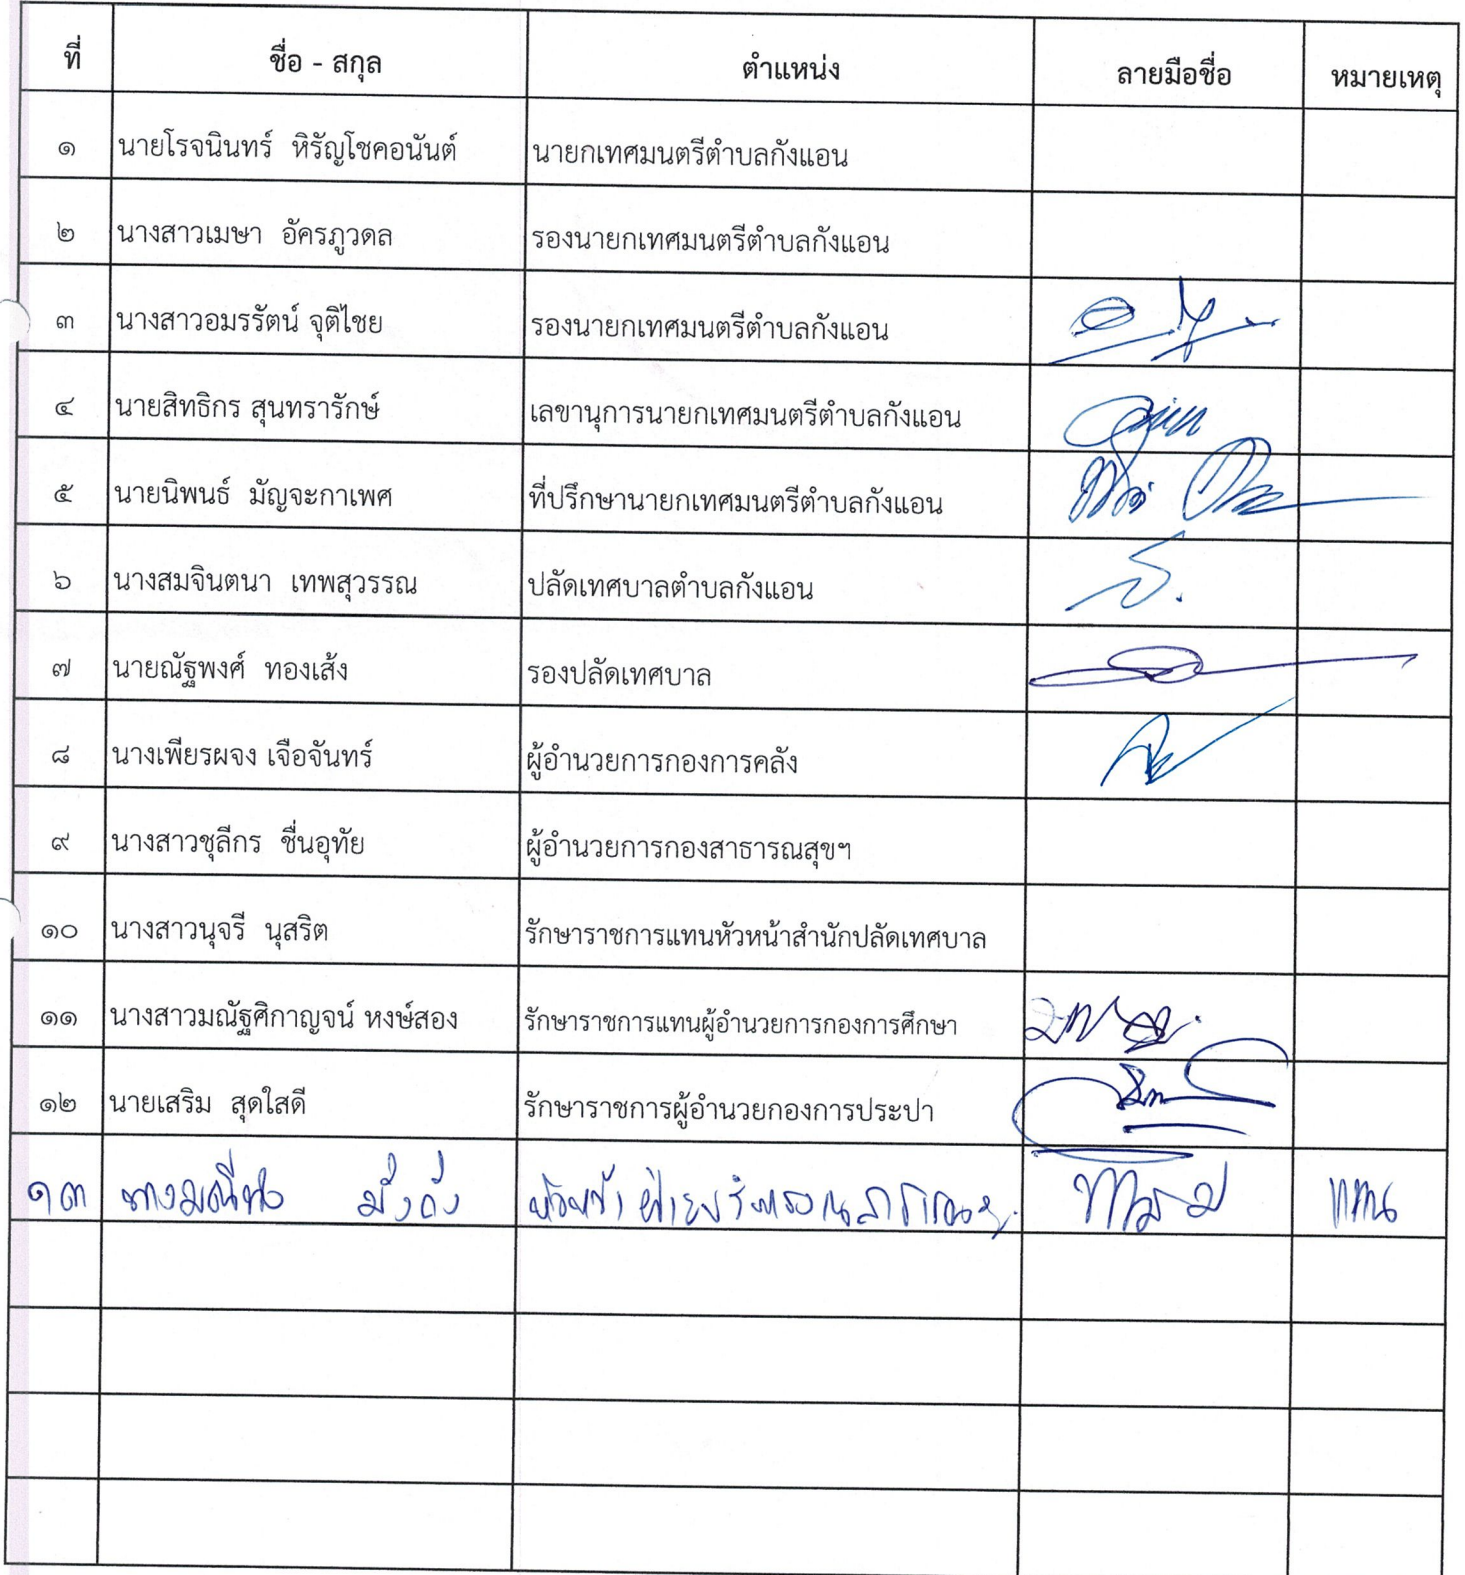 ที่ ชื่อ - สกุล ตำแหน่ง ลายมือชื่อ หมายเหตุ
๑ นายโรจนินทร์ หิรัญโชคอนันต์ นายกเทศมนตรีตำบลกังแอน
๒ นางสาวเมษา อัครภูวดล รองนายกเทศมนตรีตำบลกังแอน
๓ นางสาวอมรรัตน์ จุติไชย รองนายกเทศมนตรีตำบลกังแอน
๔ นายสิทธิกร สุนทรารักษ์ เลขานุการนายกเทศมนตรีตำบลกังแอน
๕ นายนิพนธ์ มัญจะกาเพศ ที่ปรึกษานายกเทศมนตรีตำบลกังแอน
๖ นางสมจินตนา เทพสุวรรณ ปลัดเทศบาลตำบลกังแอน
๗ นายณัฐพงศ์ ทองเส้ง รองปลัดเทศบาล
๘ นางเพียรผจง เจือจันทร์ ผู้อำนวยการกองการคลัง
๙ นางสาวชุลีกร ชื่นอุทัย ผู้อำนวยการกองสาธารณสุขฯ
๑๐ นางสาวนุจรี นุสริต รักษาราชการแทนหัวหน้าสำนักปลัดเทศบาล
๑๑ นางสาวมณัฐศิกาญจน์ หงษ์สอง รักษาราชการแทนผู้อำนวยการกองการศึกษา
๑๒ นายเสริม สุดใสดี รักษาราชการผู้อำนวยกองการประปา
๑๓ หัวหน้าฝ่ายบริหารงานสาธารณสุข แทน